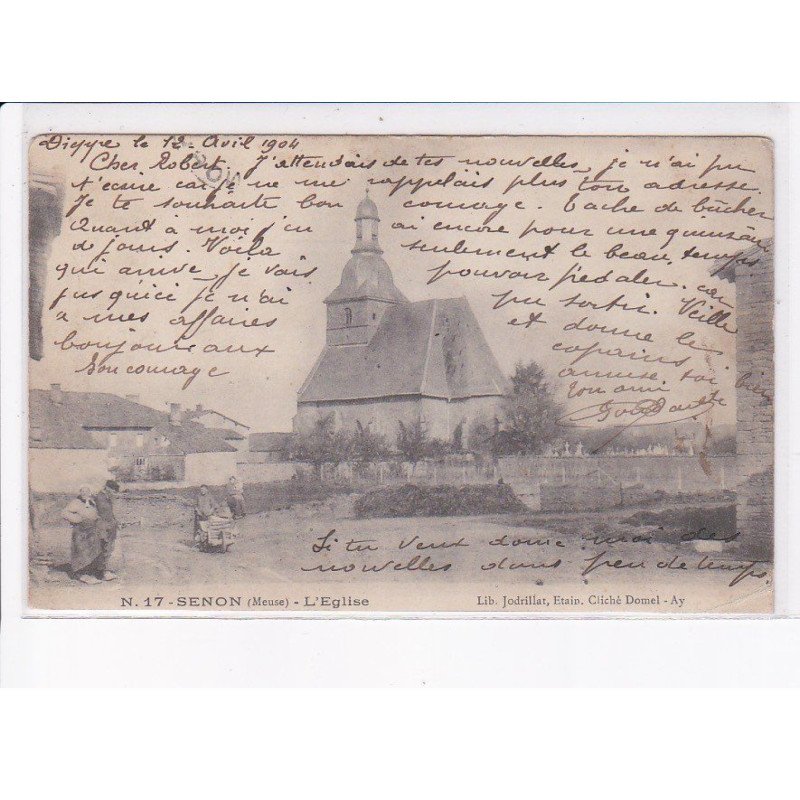 Dieppe le 12 Avril 1904
Cher Robert, J'attendais de tes nouvelles, je n'ai pu
t'ecrire car je ne me rappelais plus ton adresse.
Je te souhaite bon courage. Tache de bûcher
Quant à moi j'en ai encore pour une quinzaine
de jours. Voila seulement le beau temps
qui arive, je vais pouvoir pedaler. car
jusqu'ici je n'ai pu sortir. Veille
a mes affaires et donne les
bonjour aux copains
Bon courage amuse toi bien
Ton ami
Si tu veux donne moi des
nouvelles dans peu de temps
N. 17 - SENON (Meuse) - L'Eglise
Lib. Jodrillat, Etain. Cliché Domel - Ay